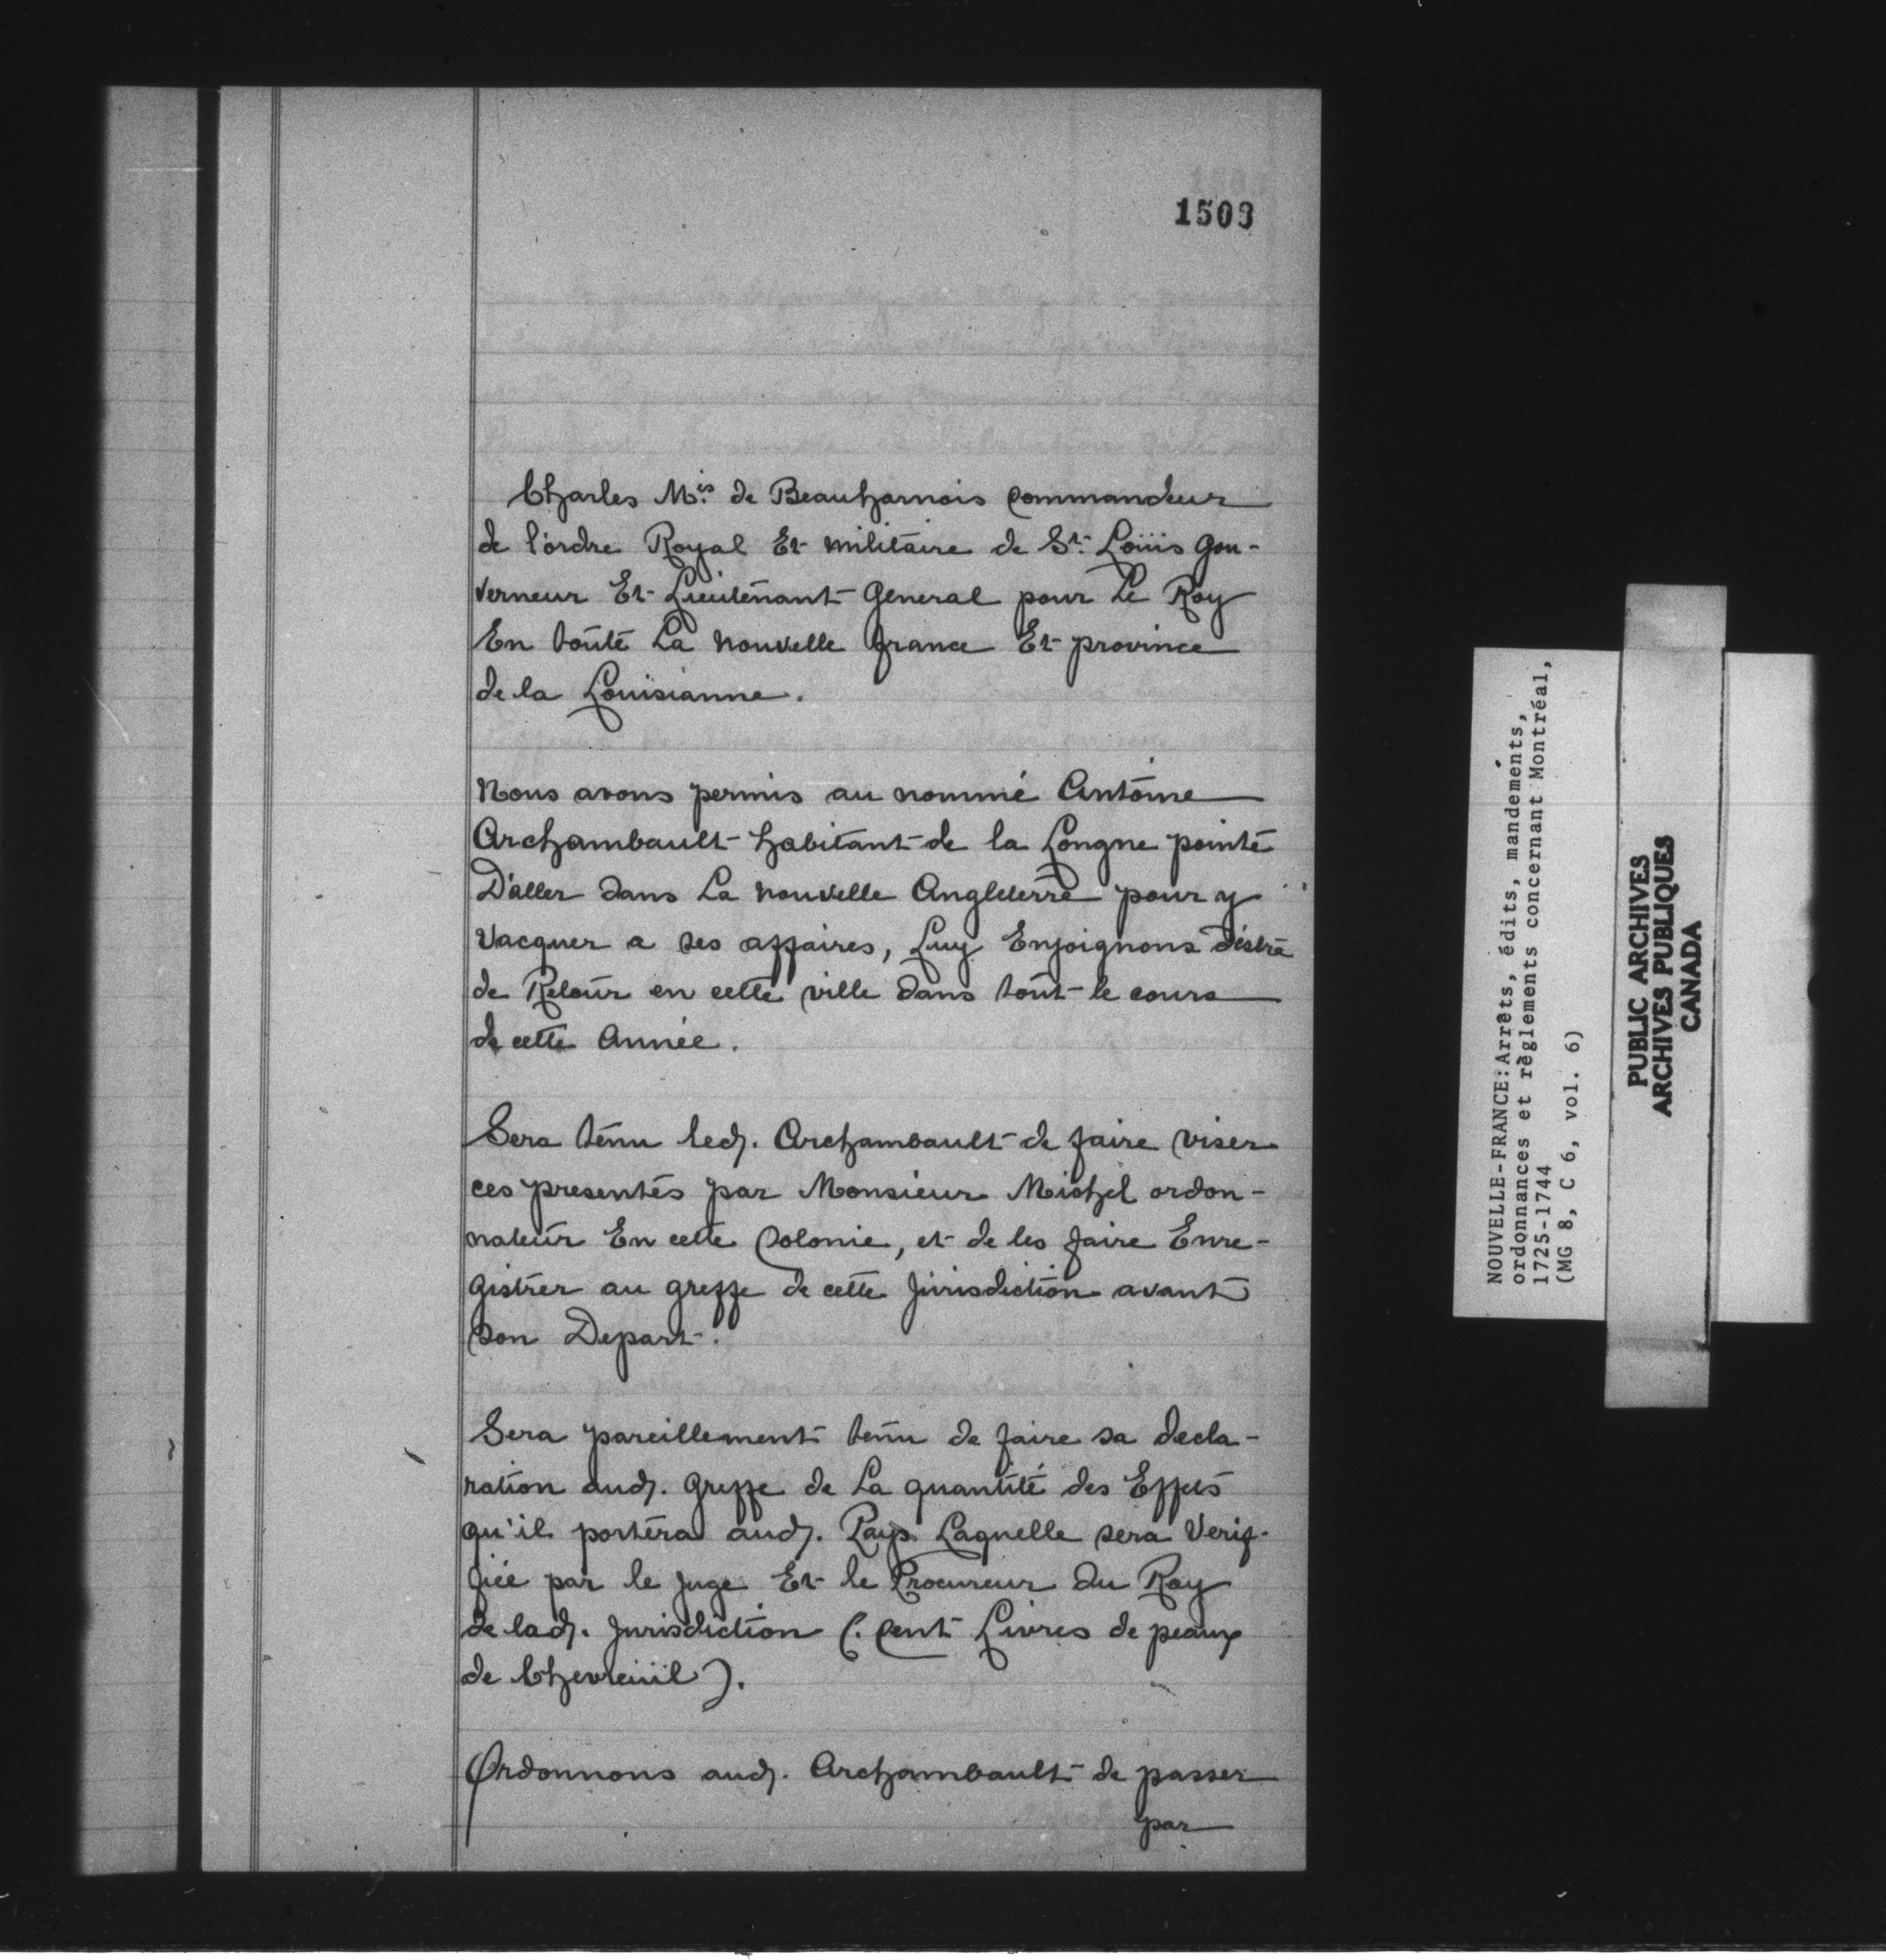 1503
Charles M.is de Beauharnois Commandeur
de l'ordre Royal Et militaire de St. Loüis Gou-
verneur Et Lieutenant General pour Le Roy
En toute La nouvelle france Et province
de la Louisianne.
Nous avons permis au nommé Antoine
Archambault habitant de la Longue pointe
D'aller dans La nouvelle Angleterre pour y
Vacquer a ses affaires, Luy Enjoignons d'éstre
de Retour en cette ville dans tout le cours
de cette Année.
Sera tenu led. Archambault de faire viser
ces presentes par Monsieur Michel ordon-
nateur En cette Colonie, et de les faire Enre-
gistrer au greffe de cette Jurisdiction avant
son Depart.
Sera pareillement tenu de faire sa decla-
ration aud. Greffe de La quantité des Effets
qu'il portera aud. Pays Laquelle sera Verif-
fiée par le Juge Et le Procureur du Roy
de lad. Jurisdiction (. Cent Livres de peaux
de Chevreüil).
Ordonnons aud. Archambault de passer
par
NOUVELLE-FRANCE: Arrêts, édits, mandements,
ordonnances et règlements concernant Montréal,
1725-1744
(MG 8, C 6, vol. 6)
PUBLIC ARCHIVES
ARCHIVES PUBLIQUES
CANADA